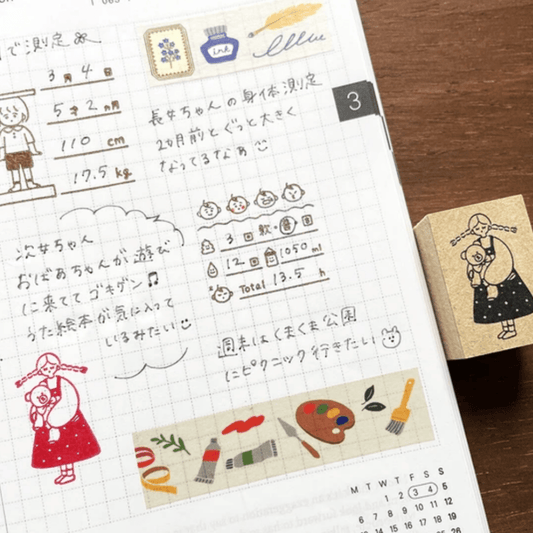 で測定
3月4日
5才2ヵ月
110 cm
17.5 kg
ink
長女ちゃんの身体測定
2ヵ月前とぐっと大きく
なってるなぁ
3
3回 飲・回
12回 1050 ml
Total 13.5 h
次女ちゃん
おばあちゃんが遊び
に来ててゴキゲン♫
うた絵本が気に入って
いるみたい
週末はくまくま公園
にピクニック行きたい
M T W T F S S
1 2 3 4 5
6 7 8 9 10 11 12